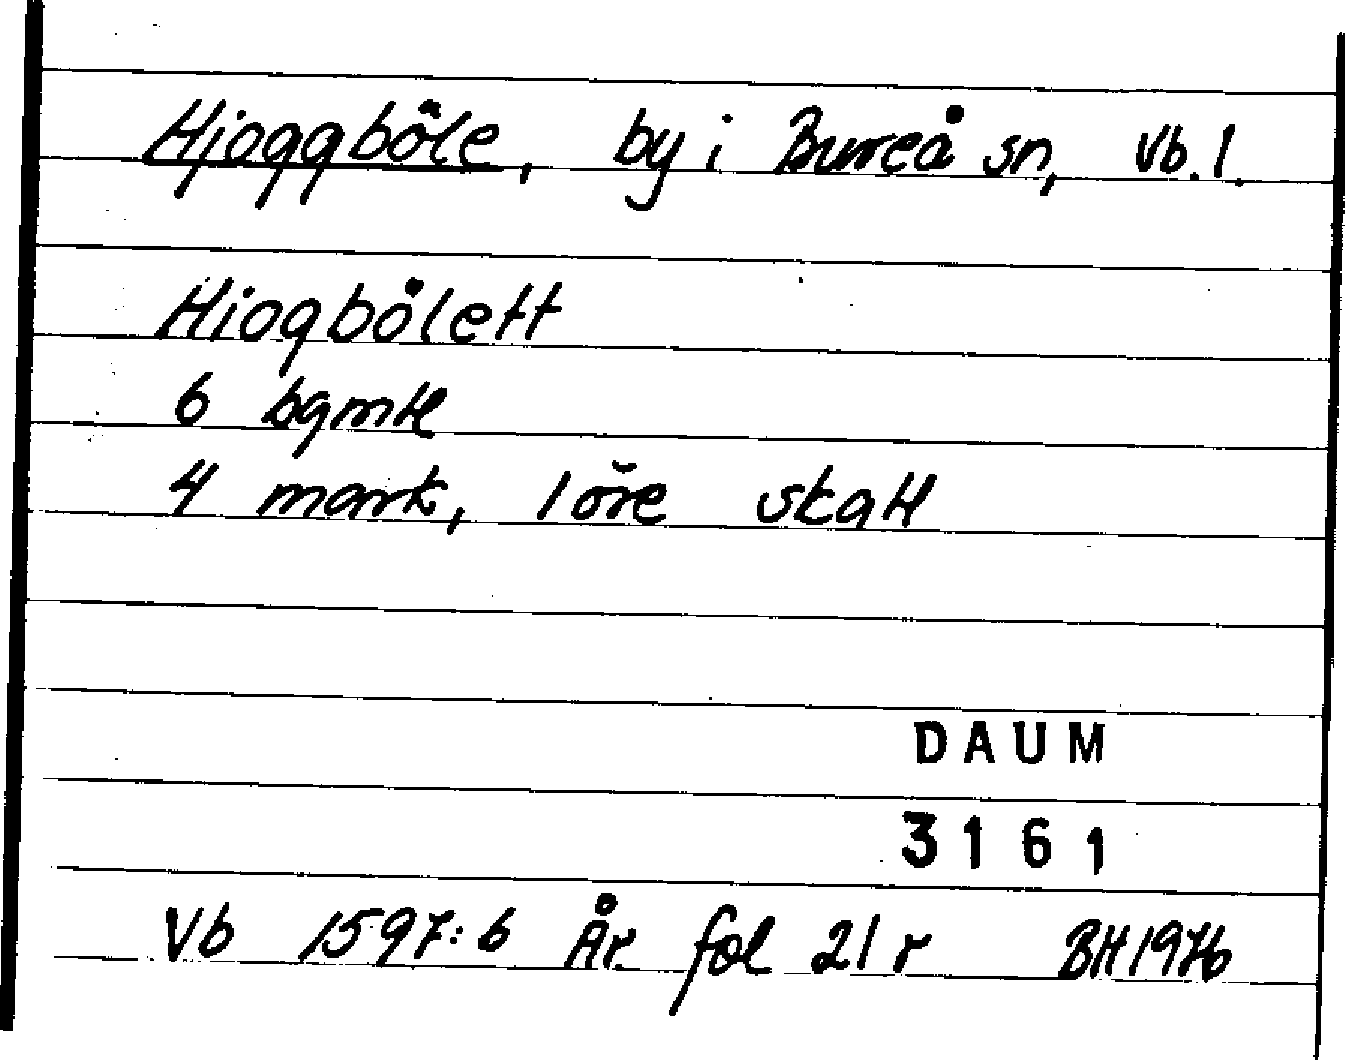 Hjoggböle, by i Bureå sn, Vb. l.
Hiogbölett
6 bgmkl
4 mark, 1 öre skatt
DAUM
3161
Vb 1597:6 År fol 21 r BH 1976